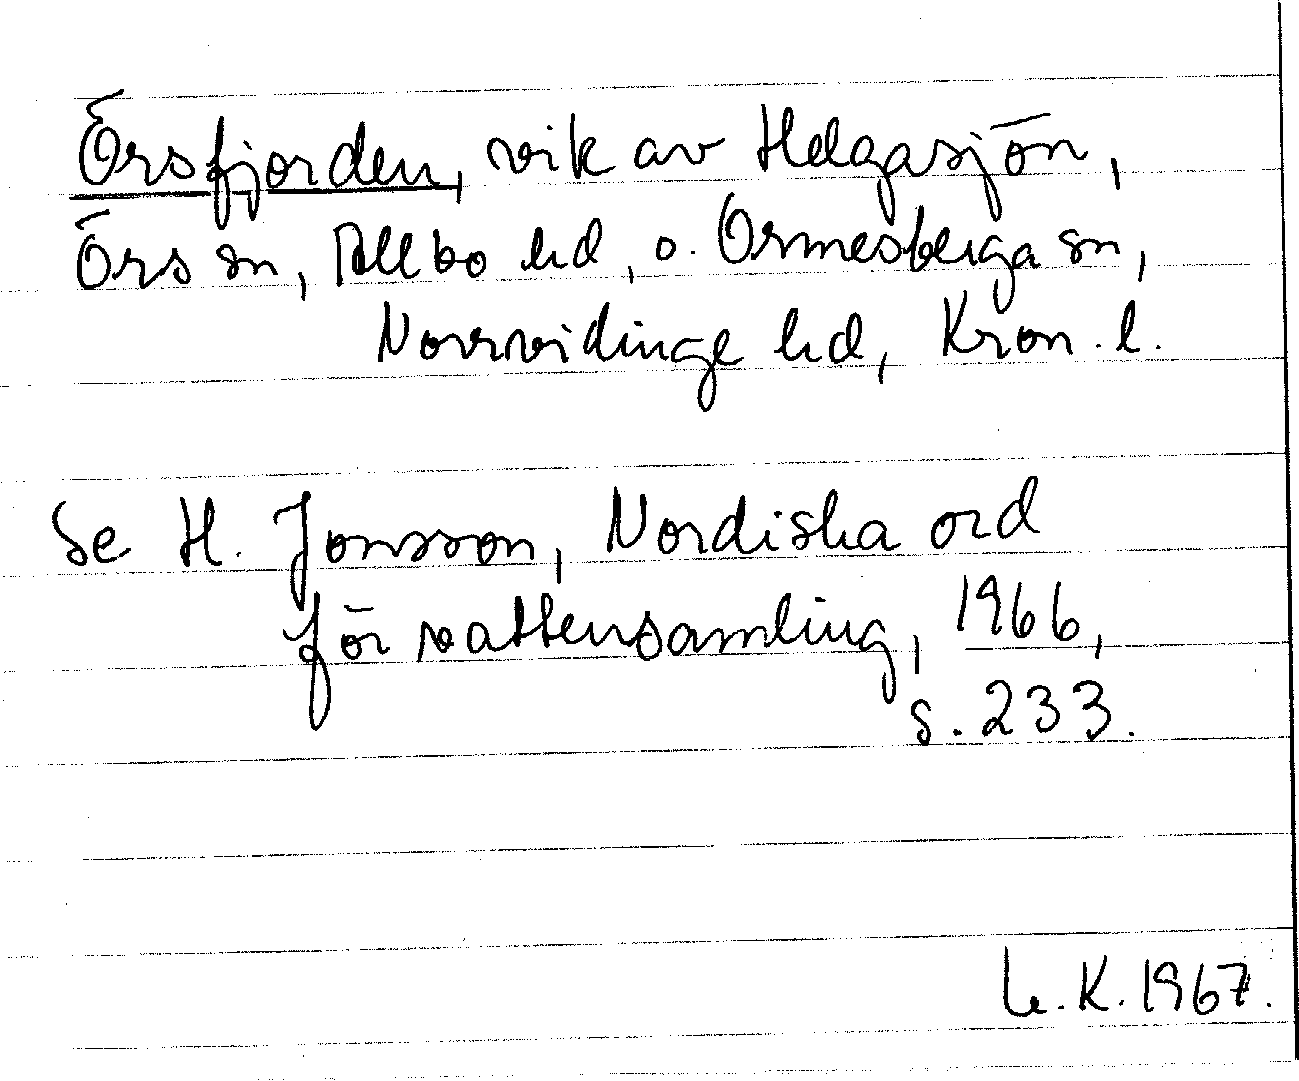 Örsfjorden, vik av Helgasjön,
Örs sn, Allbo hd, o. Ormesberga sn,
Norrvidinge hd, Kron. l.
Se H. Jonsson, Nordiska ord
för vattensamling, 1966,
s. 233.
K. 1967.